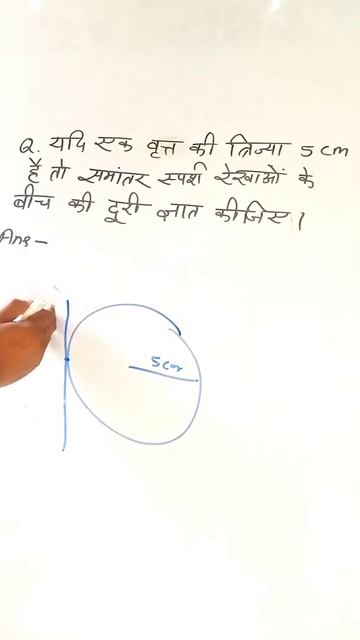 Q. यदि एक वृत्त की त्रिज्या 5 cm
है तो समांतर स्पर्श रेखाओं के
बीच की दूरी ज्ञात कीजिए।
Ans -
5cm